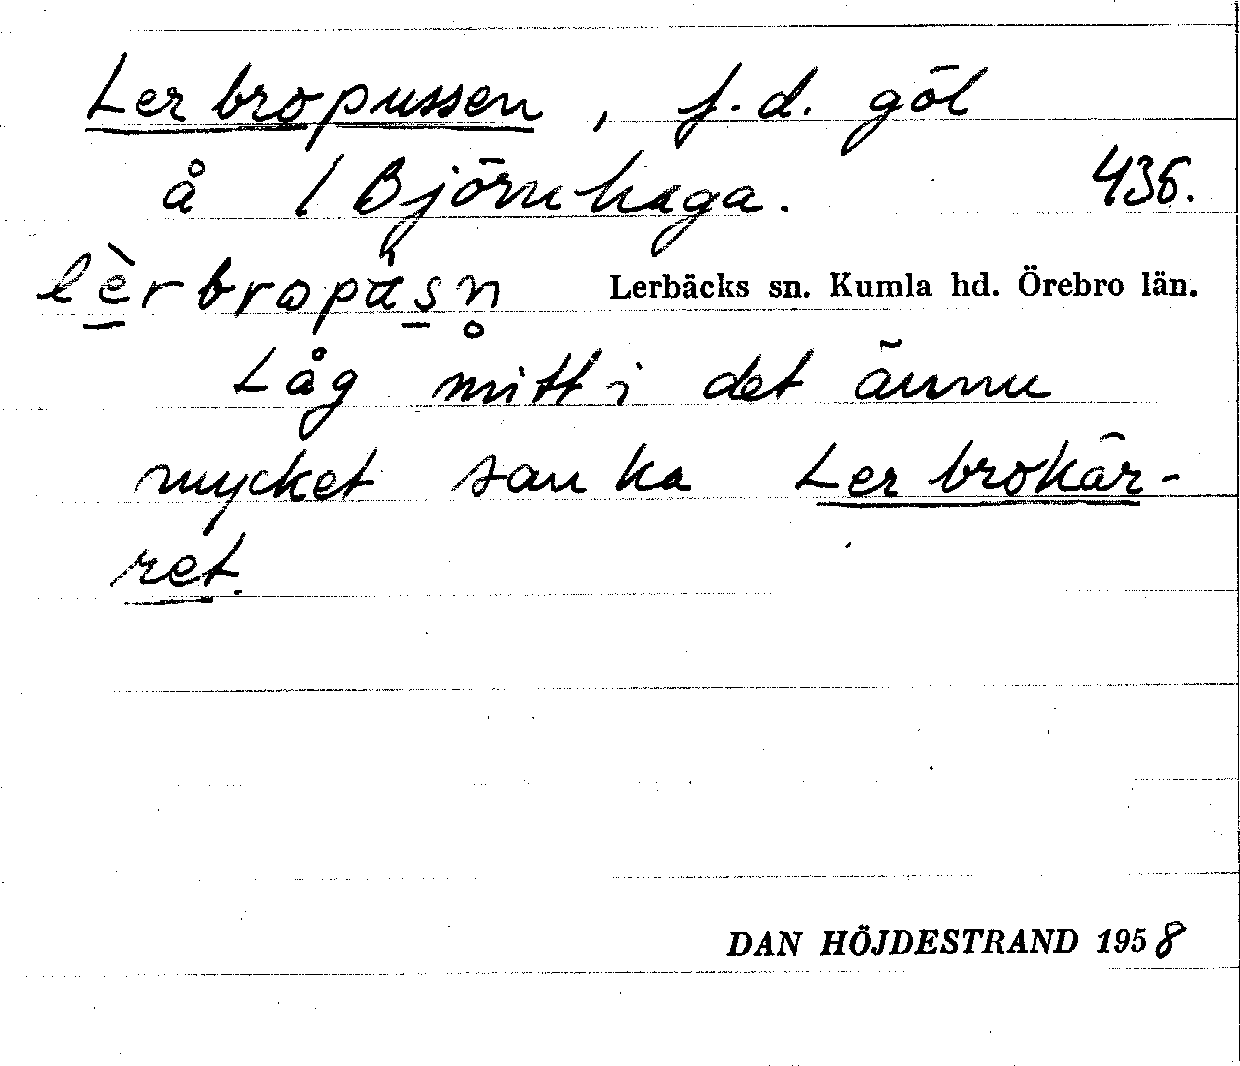 Lerbropussen, f.d. göl
å 1 Björnhaga. 436.
lèrbropasn Lerbäcks sn. Kumla hd. Örebro län.
Låg mitt i det ännu
mycket sanka Lerbrokär-
ret.
DAN HÖJDESTRAND 1958